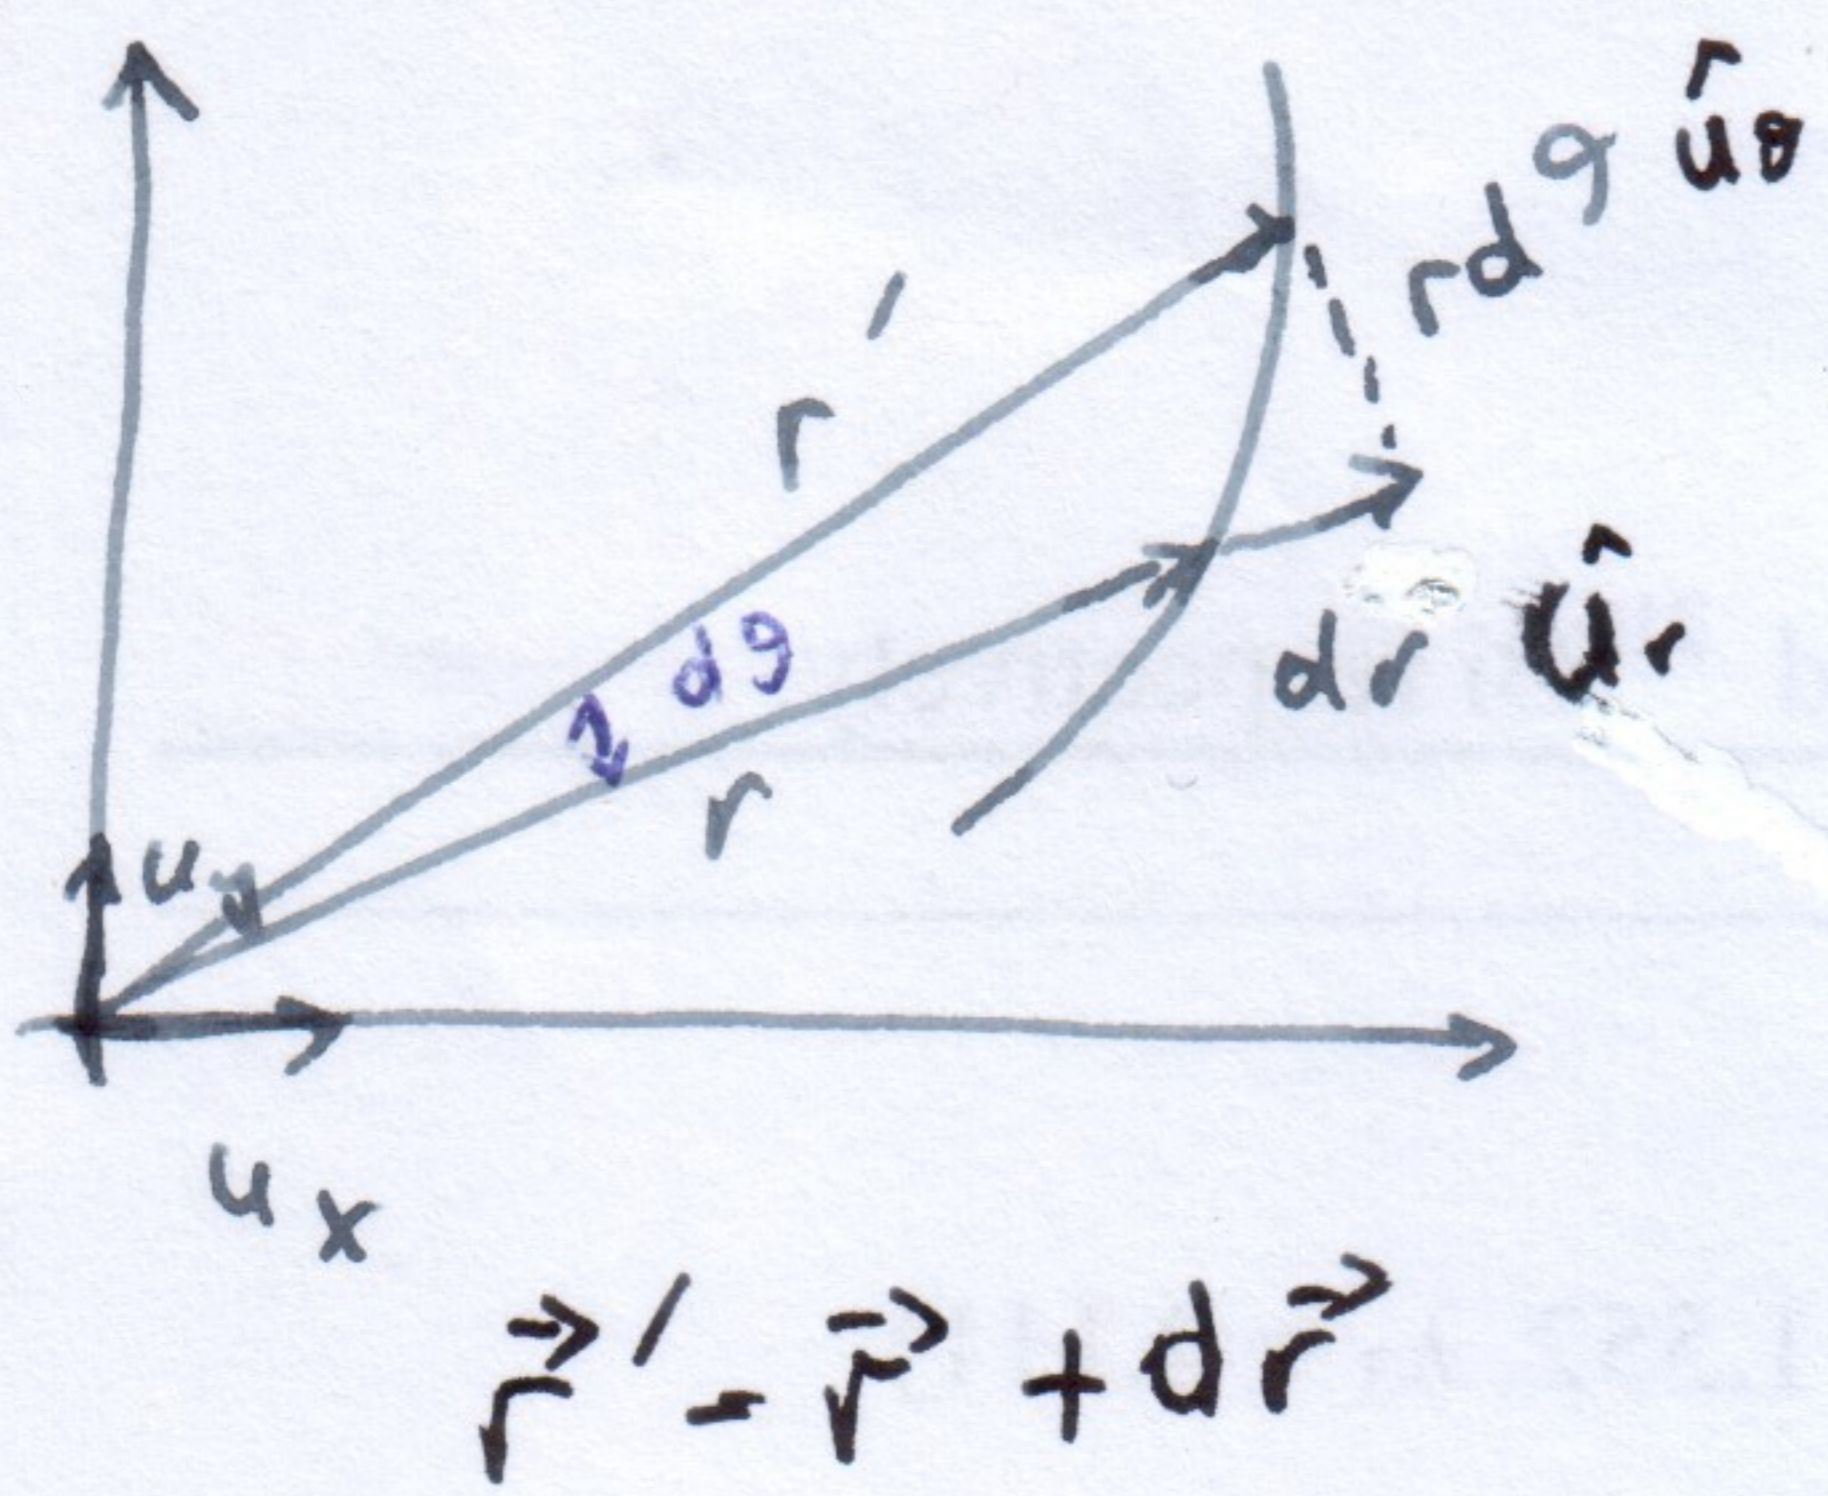 rdϑ ûθ
r′
dϑ
dr ûr
r
uy
ux
r⃗′ = r⃗ + dr⃗